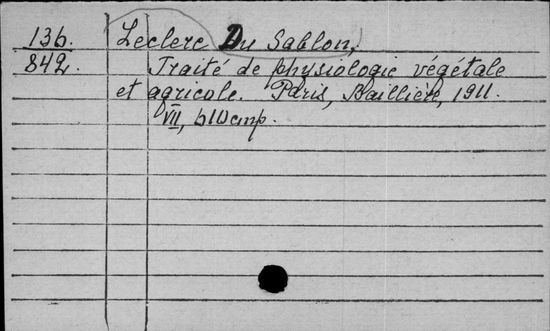 136.
842.
Leclerc Du Sablon,
Traité de physiologie végétale
et agricole. Paris, Baillière, 1911.
VII, 610 стр.